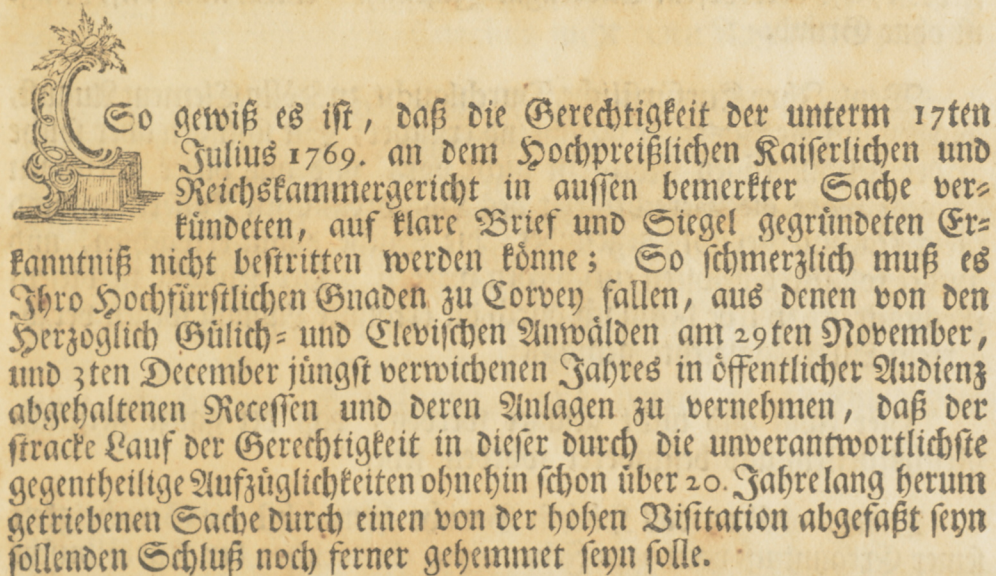 So gewiß es ist, daß die Gerechtigkeit der unterm 17ten
Julius 1769. an dem Hochpreißlichen Kaiserlichen und
Reichskammergericht in aussen bemerkter Sache ver-
kündeten, auf klare Brief und Siegel gegründeten Er-
kanntniß nicht bestritten werden könne; So schmerzlich muß es
Ihro Hochfürstlichen Gnaden zu Corvey fallen, aus denen von den
Herzoglich Gülich- und Clevischen Anwälden am 29ten November,
und 3ten December jüngst verwichenen Jahres in öffentlicher Audienz
abgehaltenen Recessen und deren Anlagen zu vernehmen, daß der
stracke Lauf der Gerechtigkeit in dieser durch die unverantwortlichste
gegentheilige Aufzüglichkeiten ohnehin schon über 20. Jahre lang herum
getriebenen Sache durch einen von der hohen Visitation abgefaßt seyn
sollenden Schluß noch ferner gehemmet seyn solle.